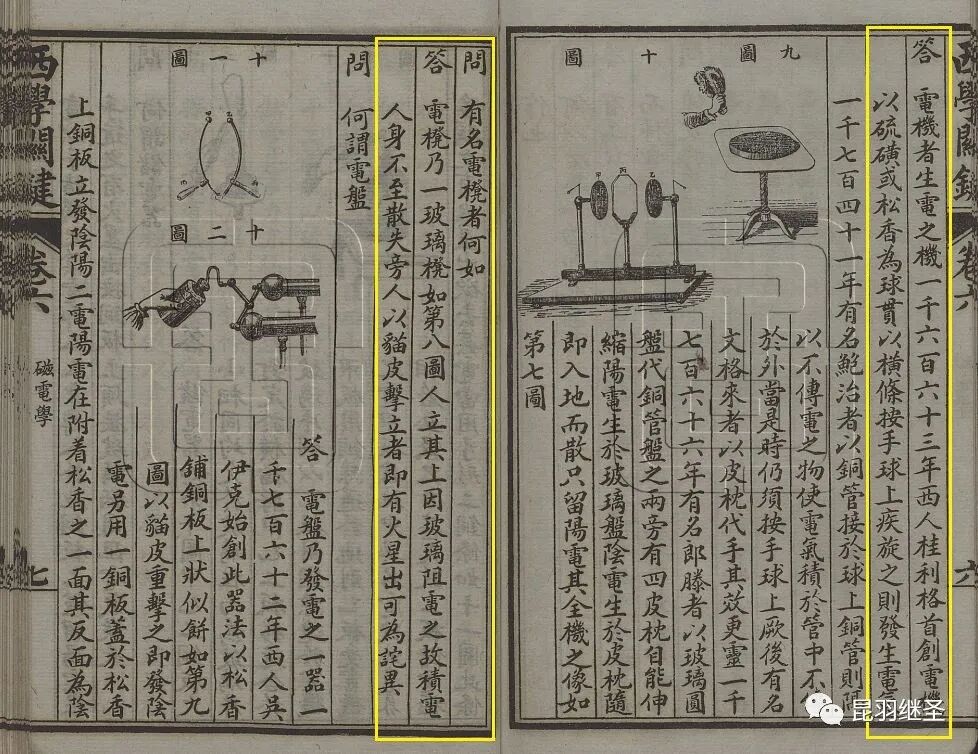 西學關鍵
卷六
六
答 電機者生電之機一千六百六十三年西人桂利格首創電機
以硫磺或松香為球貫以橫條按手球上疾旋之則發生電氣
一千七百四十一年有名鮑治者以銅管接於球上銅管則隔
九圖
十圖
以不傳電之物使電氣積於管中不
於外當是時仍須按手球上厥後有名
文格來者以皮枕代手其效更靈一千
七百六十六年有名郎滕者以玻璃圓
盤代銅管盤之兩旁有四皮枕自能伸
縮陽電生於玻璃盤陰電生於皮枕隨
即入地而散只留陽電其全機之像如
第七圖
問 有名電櫈者何如
答 電櫈乃一玻璃櫈如第八圖人立其上因玻璃阻電之故積電
人身不至散失旁人以貓皮擊立者即有火星出可為詫異
問 何謂電盤
十一圖
十二圖
答 電盤乃發電之一器一
千七百六十二年西人吳
伊克始創此器法以松香
舖銅板上狀似餅如第九
圖以貓皮重擊之即發陰
電另用一銅板蓋於松香
上銅板立發陰陽二電陽電在附着松香之一面其反面為陰
西學關鍵
卷六
磁電學
七
昆羽继圣